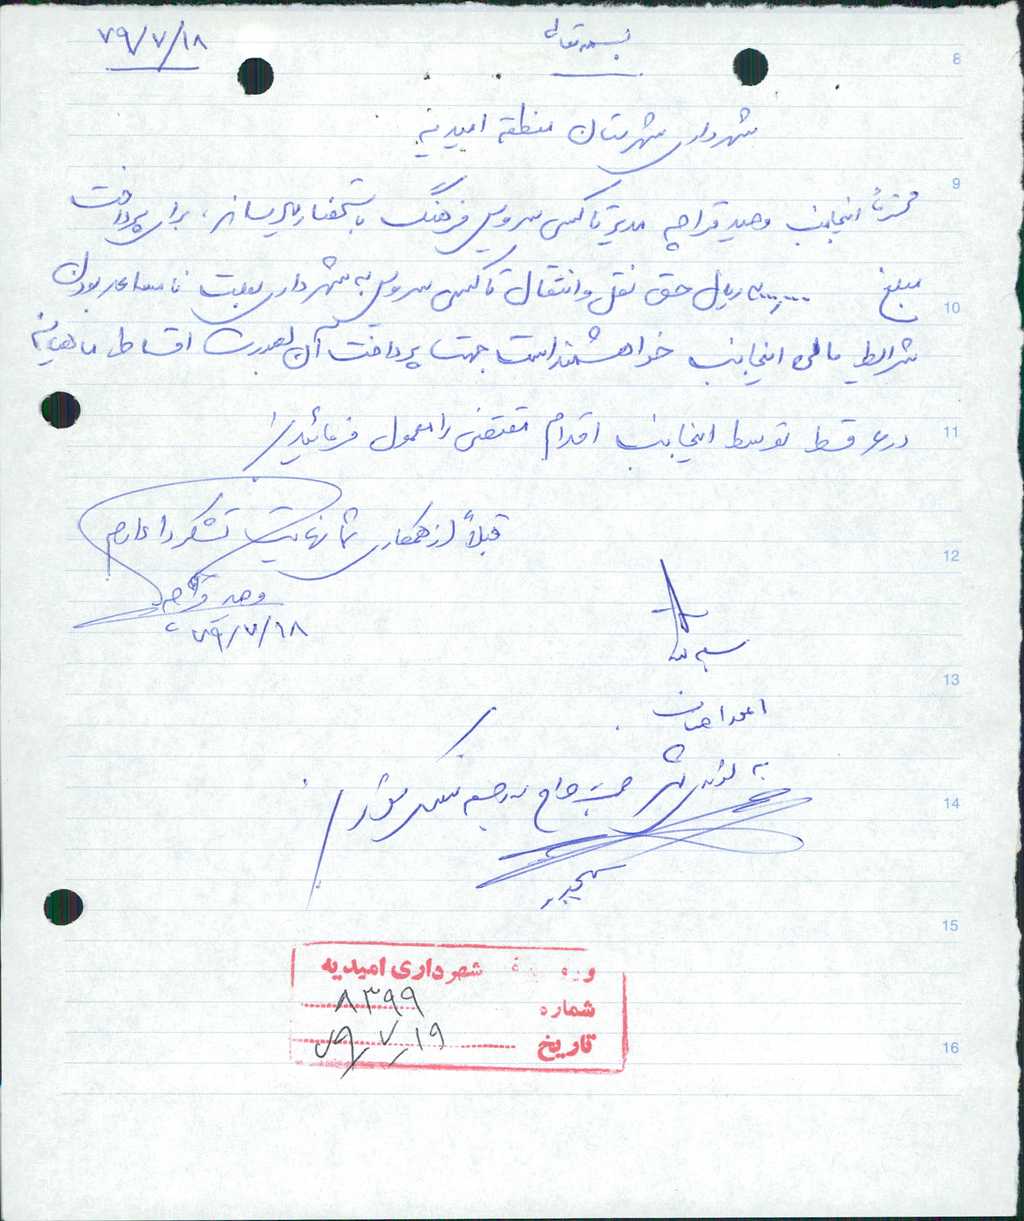 بسمه تعالی
۷۹/۷/۱۸
شهرداری شهرستان منطقه امیدیه
محترماً اینجانب وحید قراچه مدیر تاکسی سرویس فرهنگ باستحضار میرساند، برای پرداخت
مبلغ ریال حق نقل و انتقال تاکسی سرویس به شهرداری بعلت نامساعد بودن
شرایط مالی اینجانب خواهشمند است جهت پرداخت آن بصورت اقساط ماهیانه
در ۶ قسط توسط اینجانب اقدام مقتضی را معمول فرمائید.
قبلاً از همکاری شما نهایت تشکر را دارم
وحید قراچه
۷۹/۷/۱۸
8
9
10
11
12
13
14
15
16
شهرداری امیدیه
شماره ۸۳۹۹
تاریخ ۷۹/۷/۱۹